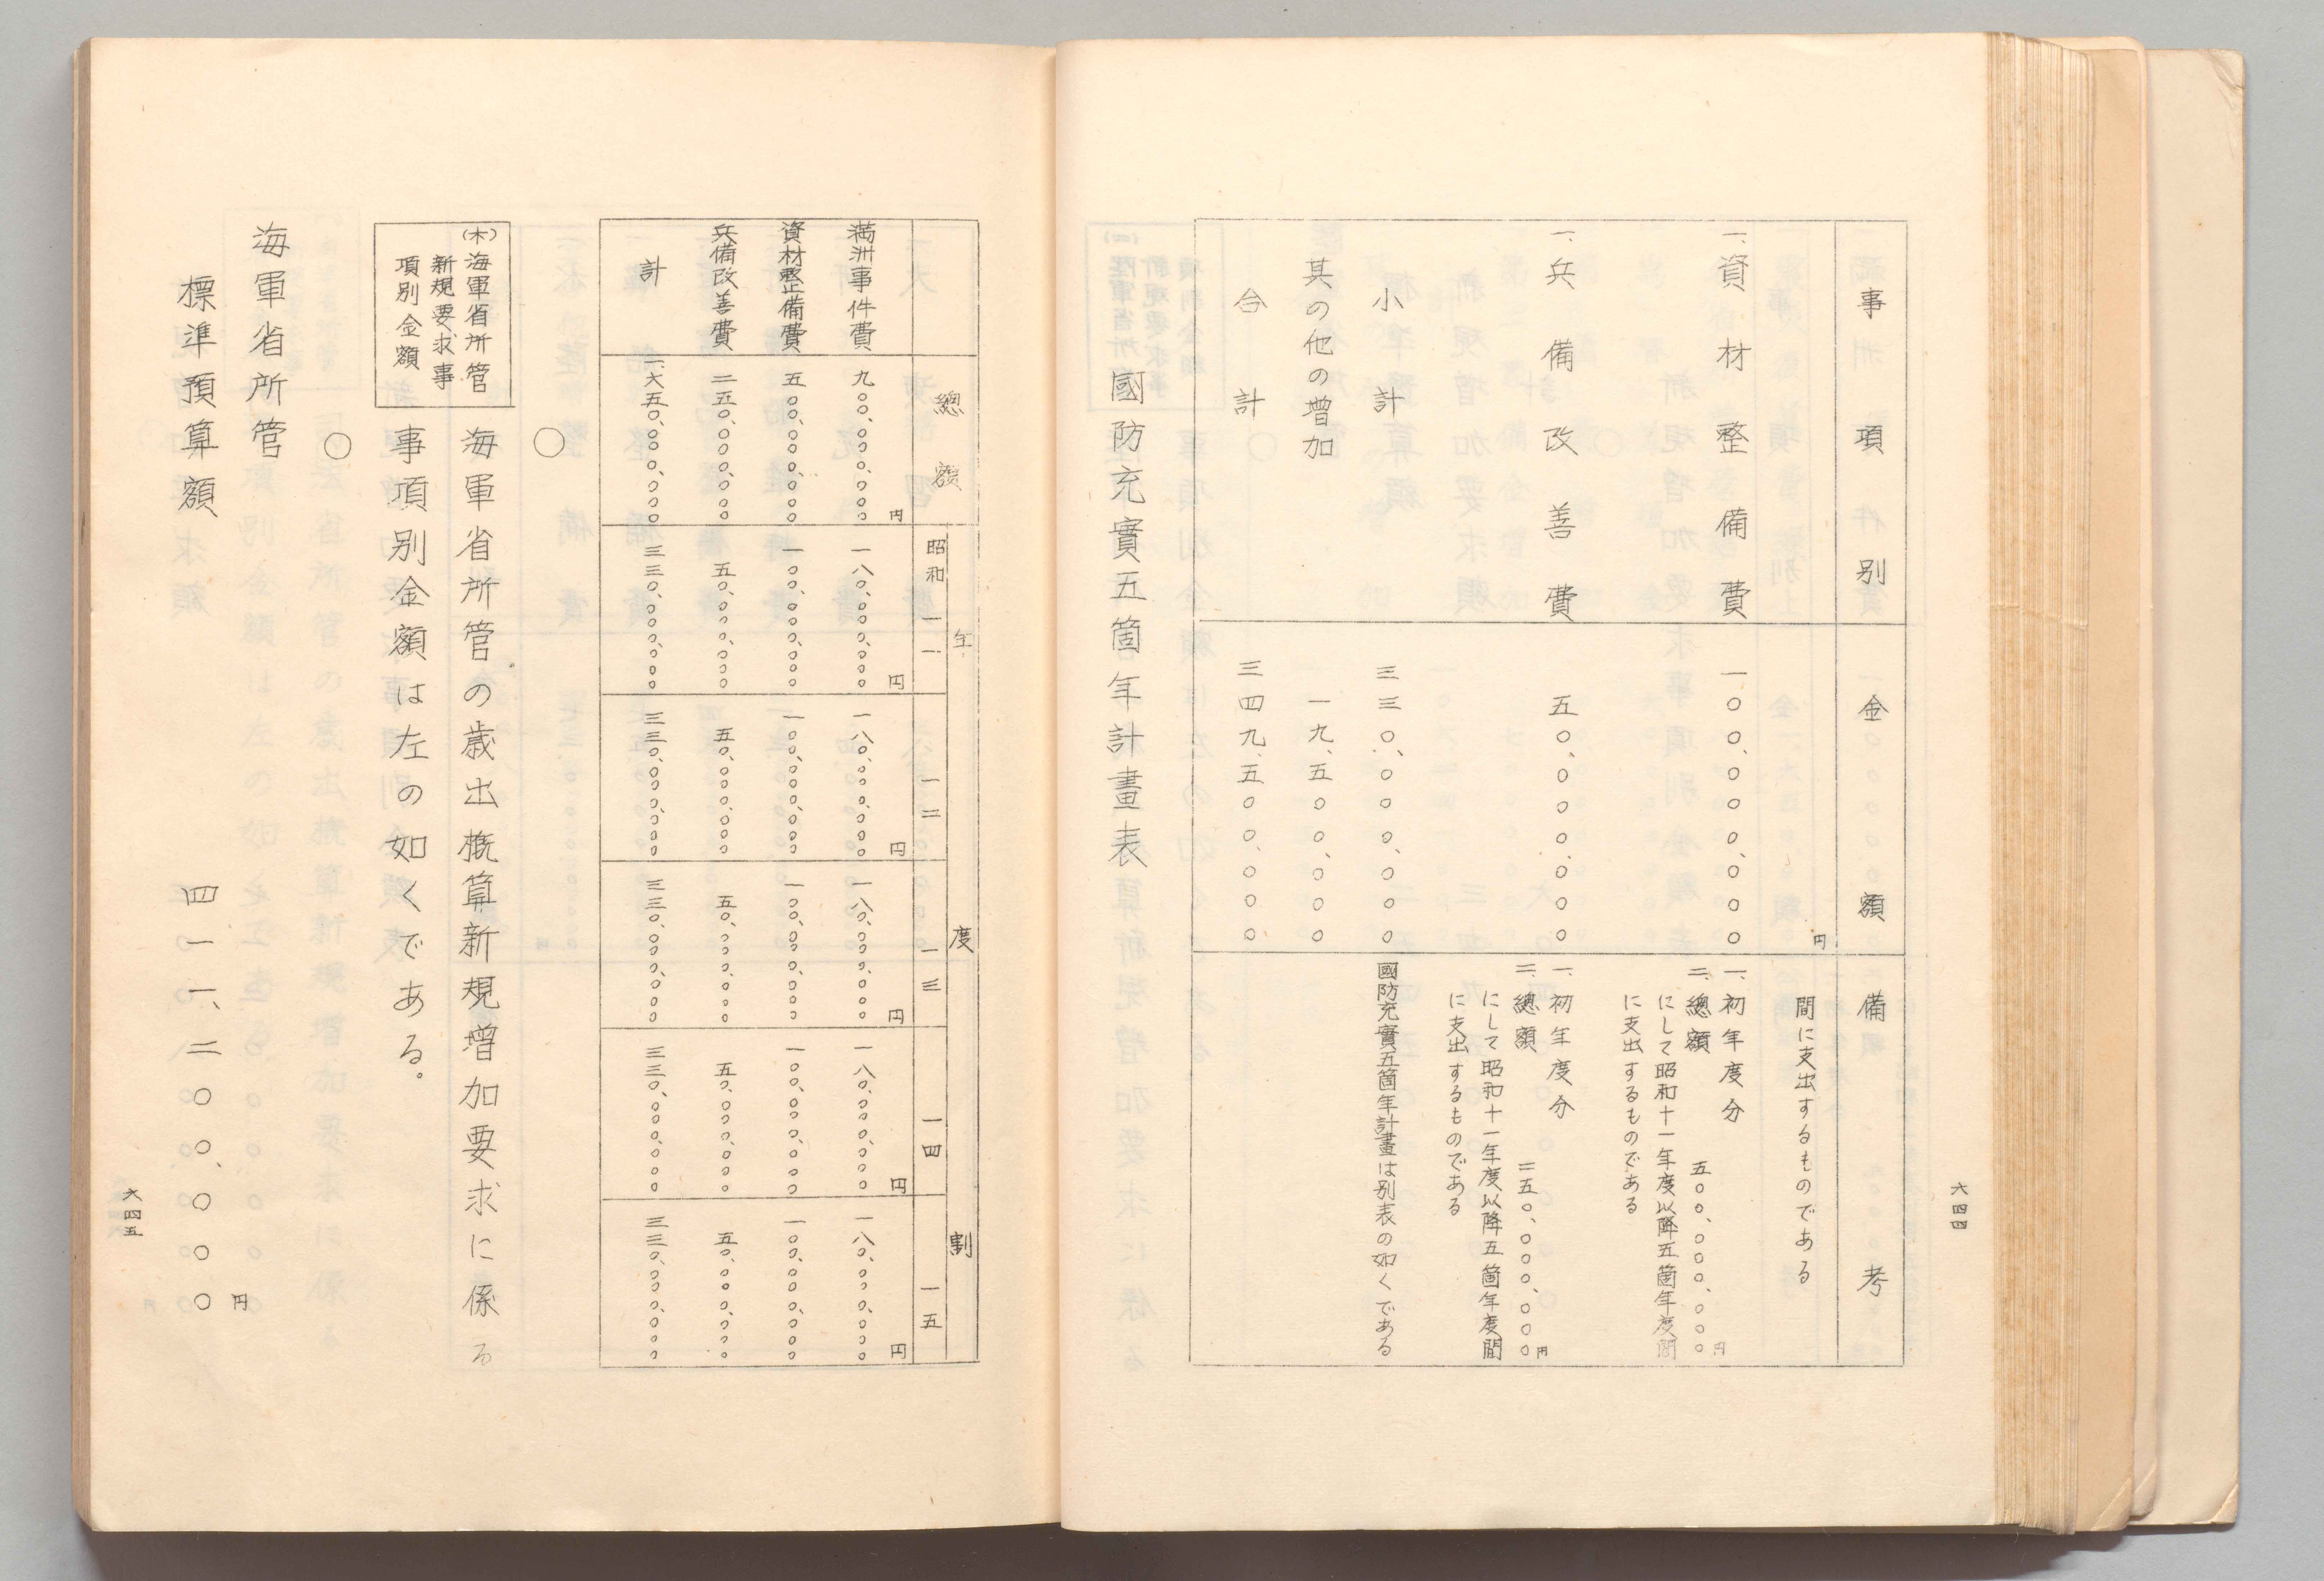 六四四
事項別
金額
備考
円
間に支出するものである
一、資材整備費
一〇〇、〇〇〇、〇〇〇
一、初年度分
二、總額 五〇〇、〇〇〇、〇〇〇円
にして昭和十一年度以降五箇年度間
に支出するものである
一、兵備改善費
五〇、〇〇〇、〇〇〇
一、初年度分
二、總額 二五〇、〇〇〇、〇〇〇円
にして昭和十一年度以降五箇年度間
に支出するものである
小計
三三〇、〇〇〇、〇〇〇
國防充實五箇年計畫は別表の如くである
其の他の増加
一九、五〇〇、〇〇〇
合計
三四九、五〇〇、〇〇〇
國防充實五箇年計畫表
總額
年度割
昭和一一
一二
一三
一四
一五
円
円
円
円
円
円
満洲事件費
九〇〇、〇〇〇、〇〇〇
一八〇、〇〇〇、〇〇〇
一八〇、〇〇〇、〇〇〇
一八〇、〇〇〇、〇〇〇
一八〇、〇〇〇、〇〇〇
一八〇、〇〇〇、〇〇〇
資材整備費
五〇〇、〇〇〇、〇〇〇
一〇〇、〇〇〇、〇〇〇
一〇〇、〇〇〇、〇〇〇
一〇〇、〇〇〇、〇〇〇
一〇〇、〇〇〇、〇〇〇
一〇〇、〇〇〇、〇〇〇
兵備改善費
二五〇、〇〇〇、〇〇〇
五〇、〇〇〇、〇〇〇
五〇、〇〇〇、〇〇〇
五〇、〇〇〇、〇〇〇
五〇、〇〇〇、〇〇〇
五〇、〇〇〇、〇〇〇
計
一、六五〇、〇〇〇、〇〇〇
三三〇、〇〇〇、〇〇〇
三三〇、〇〇〇、〇〇〇
三三〇、〇〇〇、〇〇〇
三三〇、〇〇〇、〇〇〇
三三〇、〇〇〇、〇〇〇
〇
(木)海軍省所管
新規要求事
項別金額
海軍省所管の歳出概算新規増加要求に係る
事項別金額は左の如くである。
〇
海軍省所管
標準預算額 四一一、二〇〇、〇〇〇円
六四五